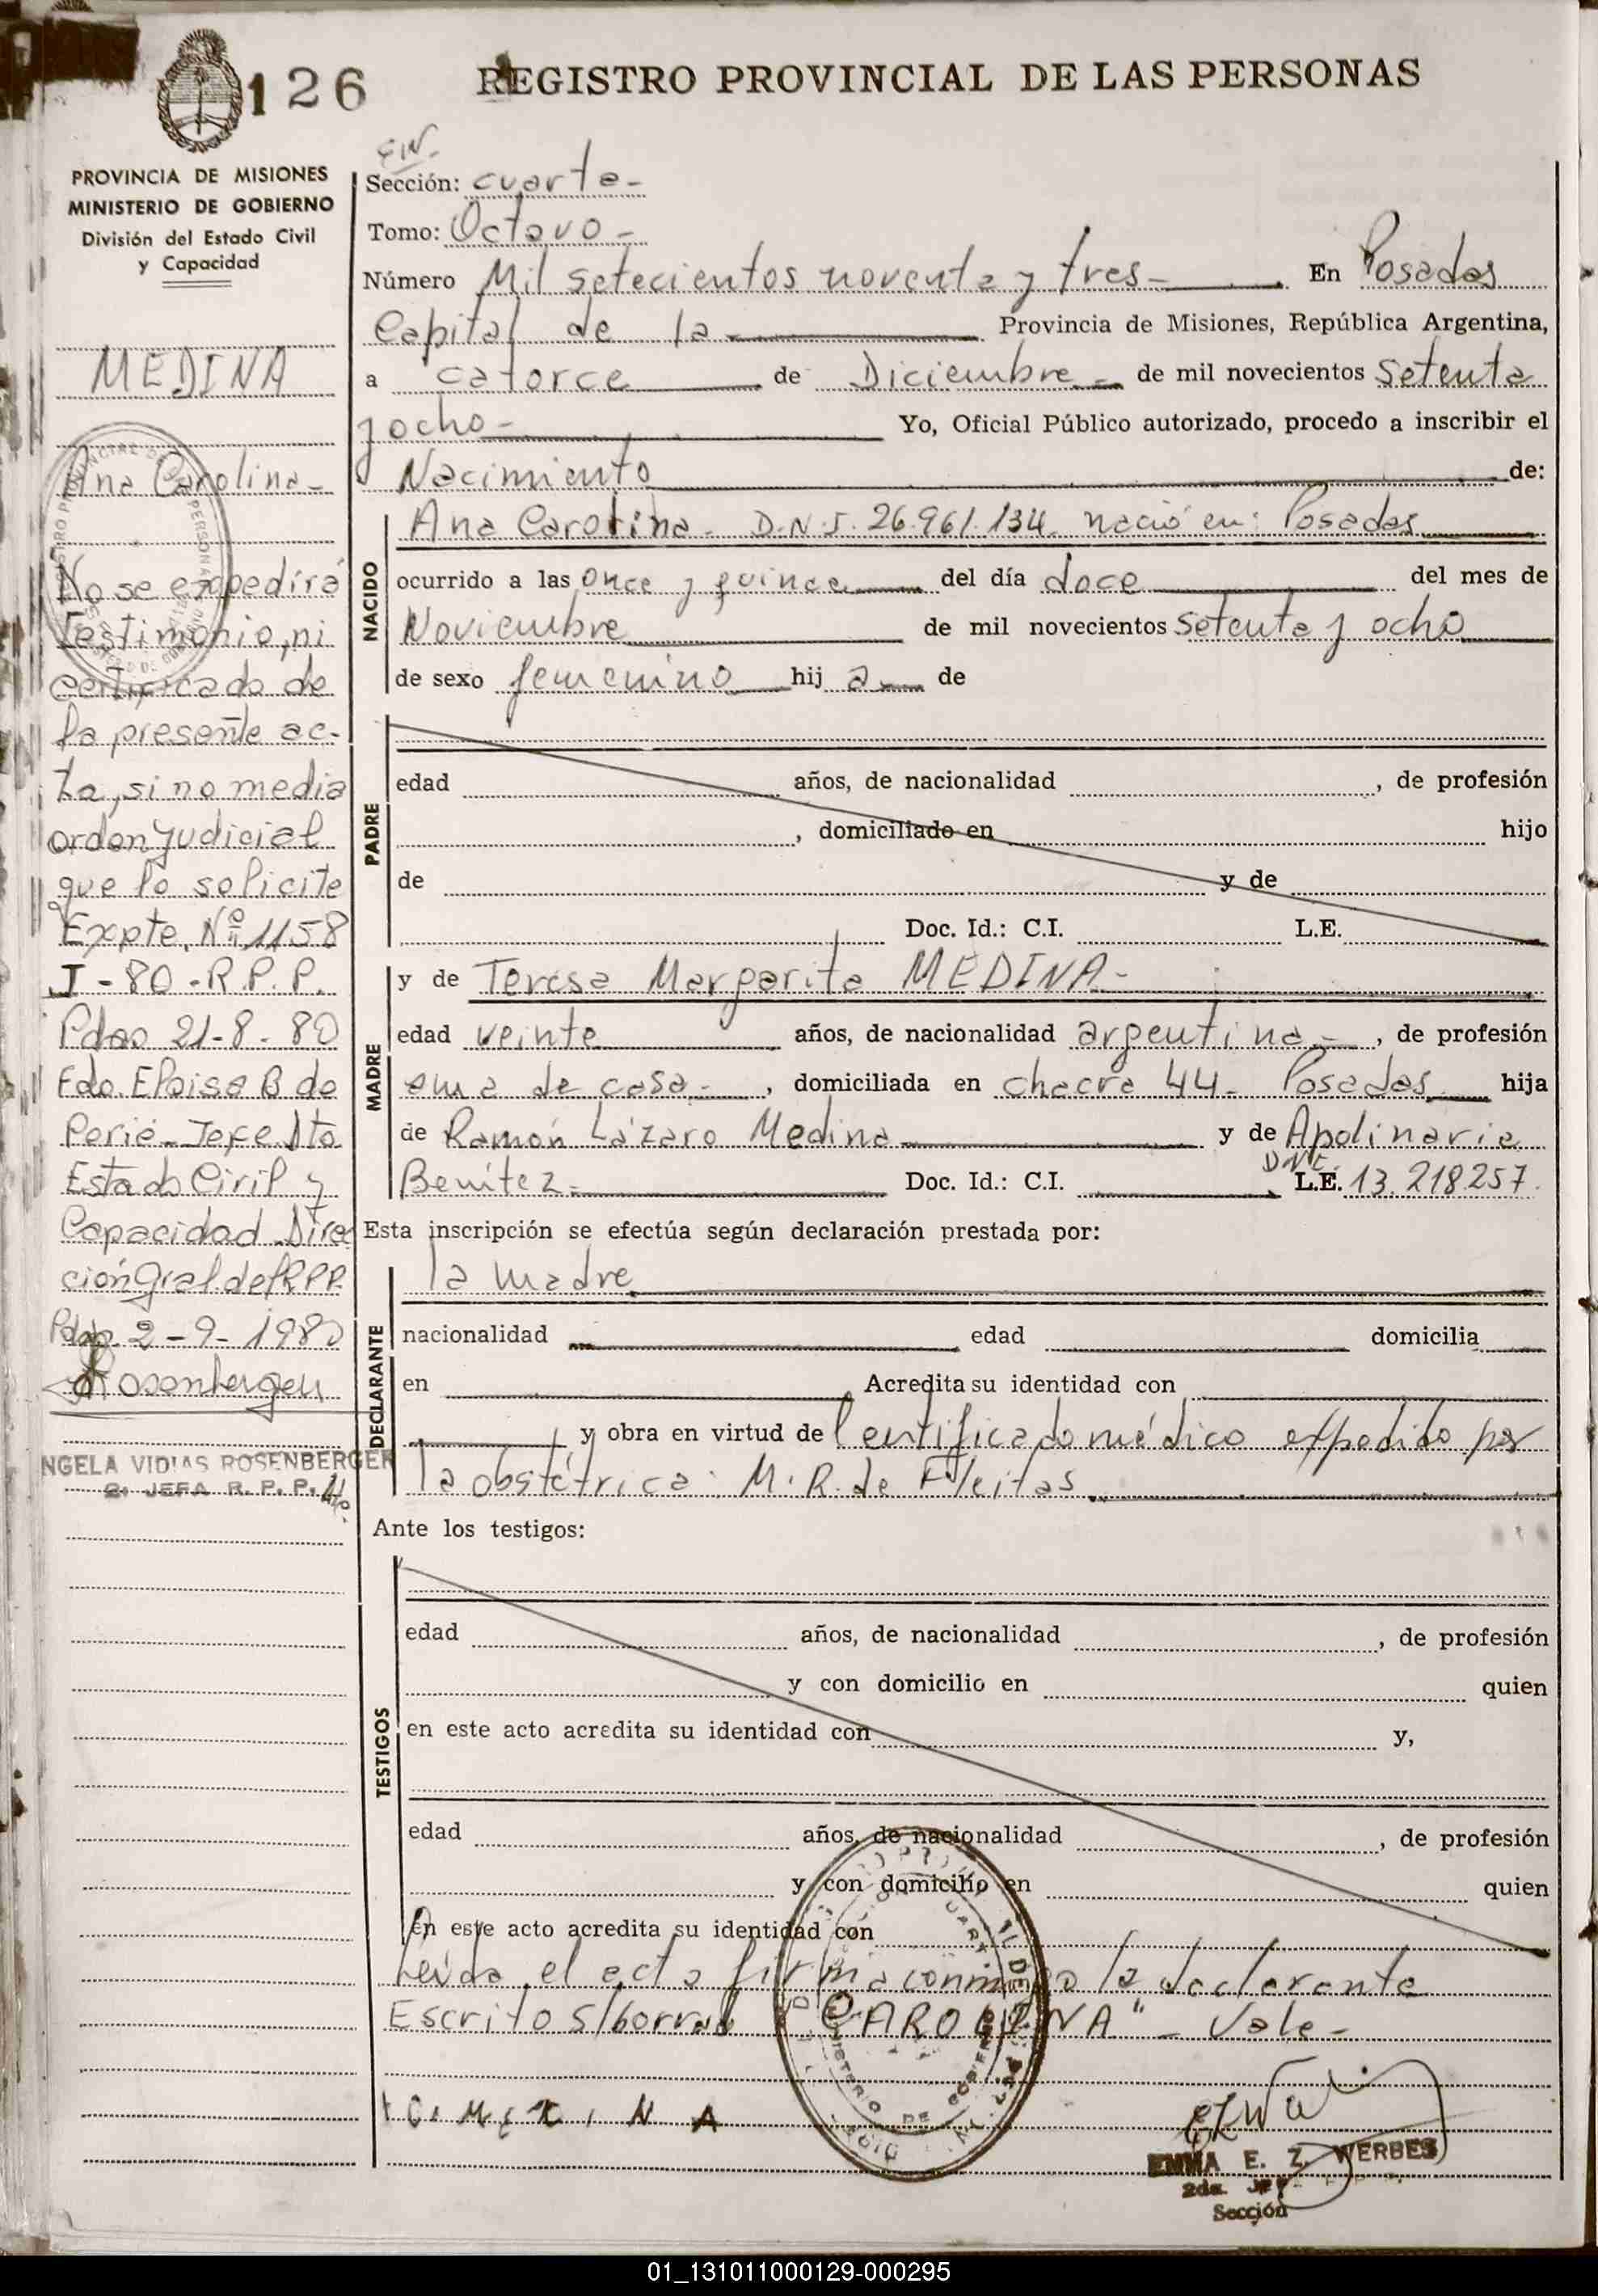 126
REGISTRO PROVINCIAL DE LAS PERSONAS
PROVINCIA DE MISIONES
MINISTERIO DE GOBIERNO
División del Estado Civil
y Capacidad
MEDINA
Ana Carolina-
No se expedirá
Testimonio, ni
certificado de
la presente ac-
ta, si no media
orden judicial
que lo solicite
Expte. Nº 1158
J - 80 - R.P.P.
Pdas 21-8-80
Fdo. Eloisa B de
Perié - Jefe Dto
Estado Civil y
Capacidad Direc
ción Gral. del R.P.P.
Pdas. 2-9-1980
Rosenberger
NGELA VIDIAS ROSENBERGER
2ª JEFA R. P. P.
Sección: cuarta-
Tomo: Octavo-
Número Mil setecientos noventa y tres- En Posadas
Capital de la Provincia de Misiones, República Argentina,
a catorce de Diciembre - de mil novecientos setenta
y ocho- Yo, Oficial Público autorizado, procedo a inscribir el
Nacimiento de:
NACIDO
Ana Carolina- D.N.I. 26.961.134 nació en: Posadas
ocurrido a las once y quince del día doce del mes de
Noviembre de mil novecientos setenta y ocho
de sexo femenino hij a de
PADRE
edad años, de nacionalidad , de profesión
, domiciliado en hijo
de y de
Doc. Id.: C.I. L.E.
MADRE
y de Teresa Margarita MEDINA-
edad veinte años, de nacionalidad argentina-, de profesión
ama de casa-, domiciliada en chacra 44- Posadas hija
de Ramón Lázaro Medina y de Apolinaria
Benítez- Doc. Id.: C.I. L.E. 13.218257.
Esta inscripción se efectúa según declaración prestada por:
DECLARANTE
la madre
nacionalidad edad domicilia
en Acredita su identidad con
y obra en virtud del certificado médico expedido por
la obstétrica: M. R. de Fleitas
Ante los testigos:
TESTIGOS
edad años, de nacionalidad , de profesión
y con domicilio en quien
en este acto acredita su identidad con y,
edad años, de nacionalidad , de profesión
y con domicilio en quien
en este acto acredita su identidad con
Leída el acta firma conmigo la declarante
Escrito s/borrado "CAROLINA" - Vale-
EMMA E. Z. WERBES
2da.
Sección
01_131011000129-000295